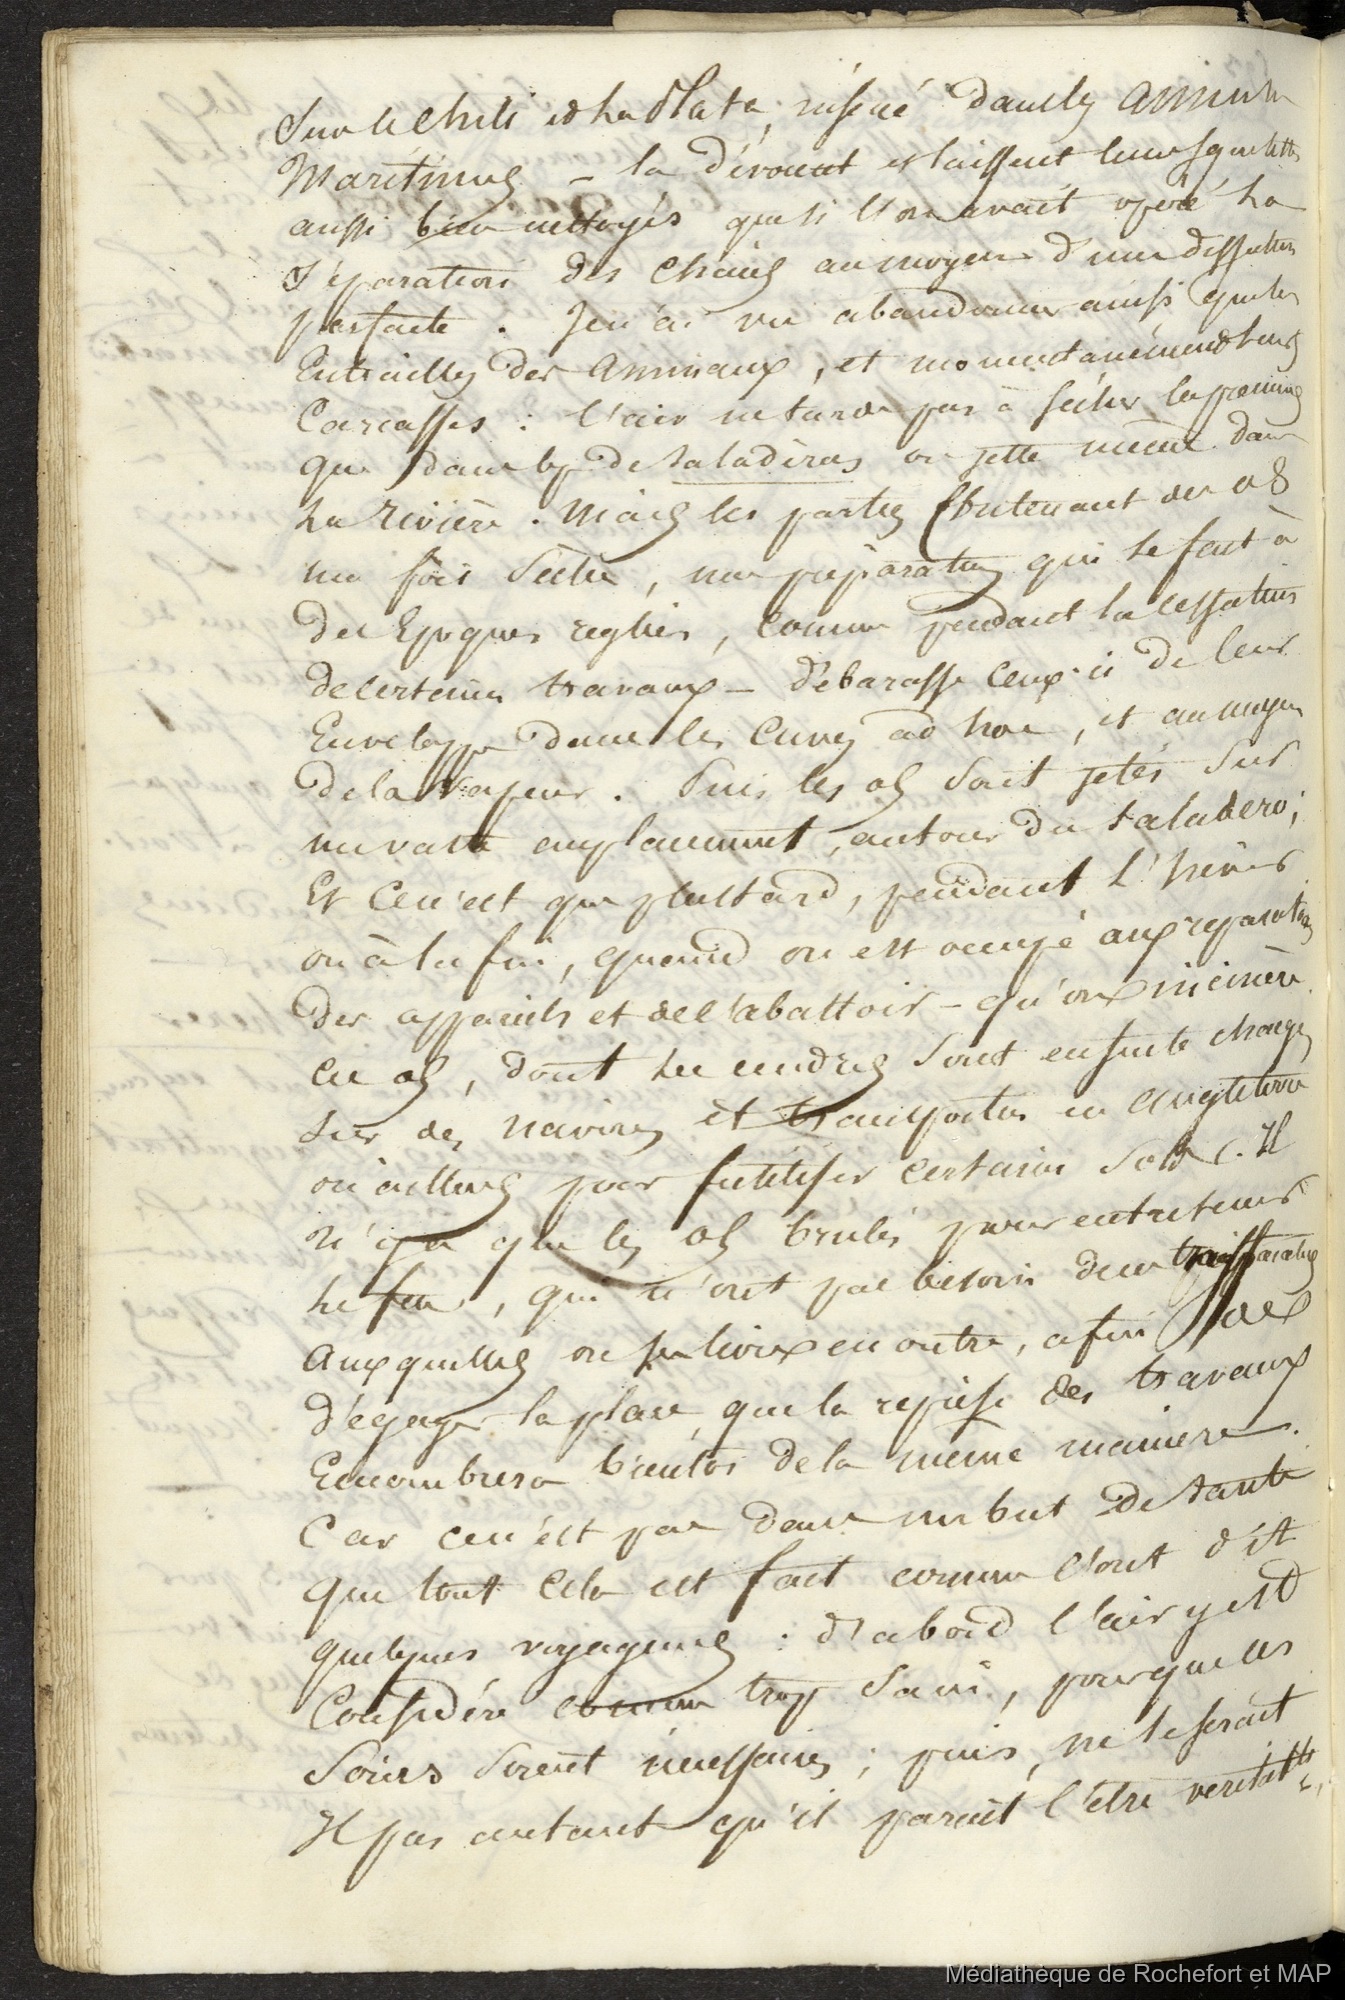 Sur le Chili et La Plata, inséré dans les Annales
Maritimes – la dévorent et laissent leurs squelettes
aussi bien nettoyés que si l'on avait opéré la
séparation des chairs au moyen d'une dissection
parfaite. J'en ai vu abandonner ainsi que les
Entrailles des Animaux, et momentanément leurs
Carcasses : l'air ne tarde pas à sécher les premières
que dans les de Saladéros on jette même dans
la rivière. Mais les parties Contenant des os
une fois sèches, une préparation qui se fait à
des Epoques reglées, comme pendant la cessation
de certains travaux – débarasse ceux-ci de leur
Enveloppe dans les cuves ad hoc, et au moyen
de la vapeur. Puis les os sont jetés sur
un vaste emplacement, autour du saladero ;
Et ce n'est que plus tard, pendant l'hiver
ou à la fin, quand on est occupé aux reparations
des appareils et de l'abattoir – qu'on incinère
ces os, dont les cendres sont ensuite chargées
sur des navires et transportées en Angleterre
ou ailleurs pour fertiliser certains sols. Il
n'y a que les os brulés pour entretenir
le feu, qui n'ont pas besoin de
Auxquelles on se livre en outre, afin de
dégager la place, que la reprise des travaux
Encombrera bientôt de la même manière.
Car ce n'est pas dans un but de santé
que tout cela est fait comme l'ont dit
quelques voyageurs : d'abord l'air y est
Considéré comme trop sain, pour que ces
soins soient nécessaires ; puis, ne le serait
Il pas autant qu'il parait l'être
Médiathèque de Rochefort et MAP